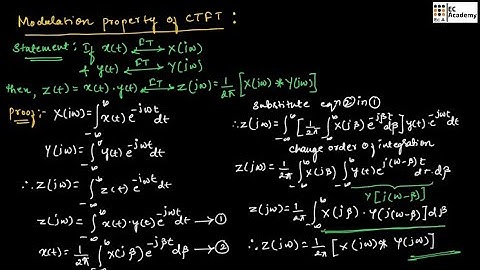 Modulation property of CTFT :
EC Academy
Statement : If x(t) ⟷FT X(jω)
& y(t) ⟷FT Y(jω)
then, z(t) = x(t)·y(t) ⟷FT z(jω) = 1/2π [X(jω) * Y(jω)]
Proof:- X(jω) = ∫_{-∞}^{∞} x(t) e^{-jωt} dt
Y(jω) = ∫_{-∞}^{∞} y(t) e^{-jωt} dt
∴ z(jω) = ∫_{-∞}^{∞} z(t) e^{-jωt} dt
z(jω) = ∫_{-∞}^{∞} x(t)·y(t) e^{-jωt} dt → ①
x(t) = 1/2π ∫_{-∞}^{∞} x(jβ) e^{-jβt} dβ → ②
Substitute eqn ② in ①
∴ z(jω) = ∫_{-∞}^{∞} [1/2π ∫_{-∞}^{∞} x(jβ) e^{-jβt} dβ] y(t) e^{-jωt} dt
change order of integration
z(jω) = 1/2π ∫_{-∞}^{∞} x(jβ) ∫_{-∞}^{∞} y(t) e^{j(ω-β)t} dt·dβ
Y[j(ω-β)]
z(jω) = 1/2π ∫_{-∞}^{∞} X(jβ)·Y(j(ω-β)] dβ
∴ z(jω) = 1/2π [X(jω) * Y(jω)]